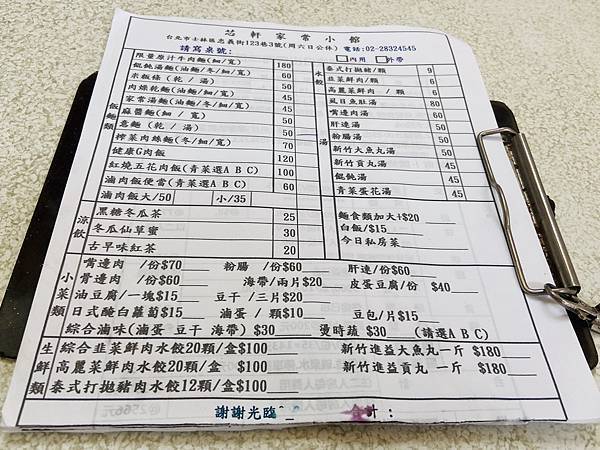 芯軒家常小館
台北市士林區忠義街123巷3號(周六日公休) 電話:02-28324545
請寫桌號: □內用 □外帶
飯麵類
限量原汁牛肉麵(細/寬) 180
餛飩湯麵(油麵/冬/細/寬) 60
米粄條(乾 / 湯) 50
肉燥乾麵(油麵/細/寬) 45
家常湯麵(油麵/冬/細/寬) 45
麻醬麵(細 / 寬) 50
意麵(乾 / 湯) 50
榨菜肉絲麵(冬/細/寬) 70
健康G肉飯 120
紅燒五花肉飯(青菜選A B C) 100
滷肉飯便當(青菜選A B C) 60
滷肉飯大/50 小/35
涼飲
黑糖冬瓜茶 25
冬瓜仙草蜜 30
古早味紅茶 20
水餃
泰式打拋豬/顆 9
韭菜鮮肉/顆 6
高麗菜鮮肉 / 顆 6
湯
虱目魚肚湯 80
嘴邊肉湯 60
肝連湯 60
粉腸湯 60
新竹大魚丸湯 50
新竹貢丸湯 45
餛飩湯 45
青菜蛋花湯 45
麵食類加大+$20
白飯/$15
今日私房菜
小菜類
嘴邊肉 /份$70 粉腸 /份$60 肝連/份$60
骨邊肉 /份$60 海帶/兩片$20 皮蛋豆腐/份 $40
油豆腐/一塊$15 豆干 /三片$20
日式醃白蘿蔔$15 滷蛋 / 顆$10 豆包/片$15
綜合滷味(滷蛋 豆干 海帶) $30 燙時蔬 $30 (請選A B C)
生鮮類
綜合韭菜鮮肉水餃20顆/盒$100 新竹進益大魚丸一斤 $180
高麗菜鮮肉水餃20顆/盒$100 新竹進益貢丸 一斤 $180
泰式打拋豬肉水餃12顆/盒$100
謝謝光臨^_^ 合計: